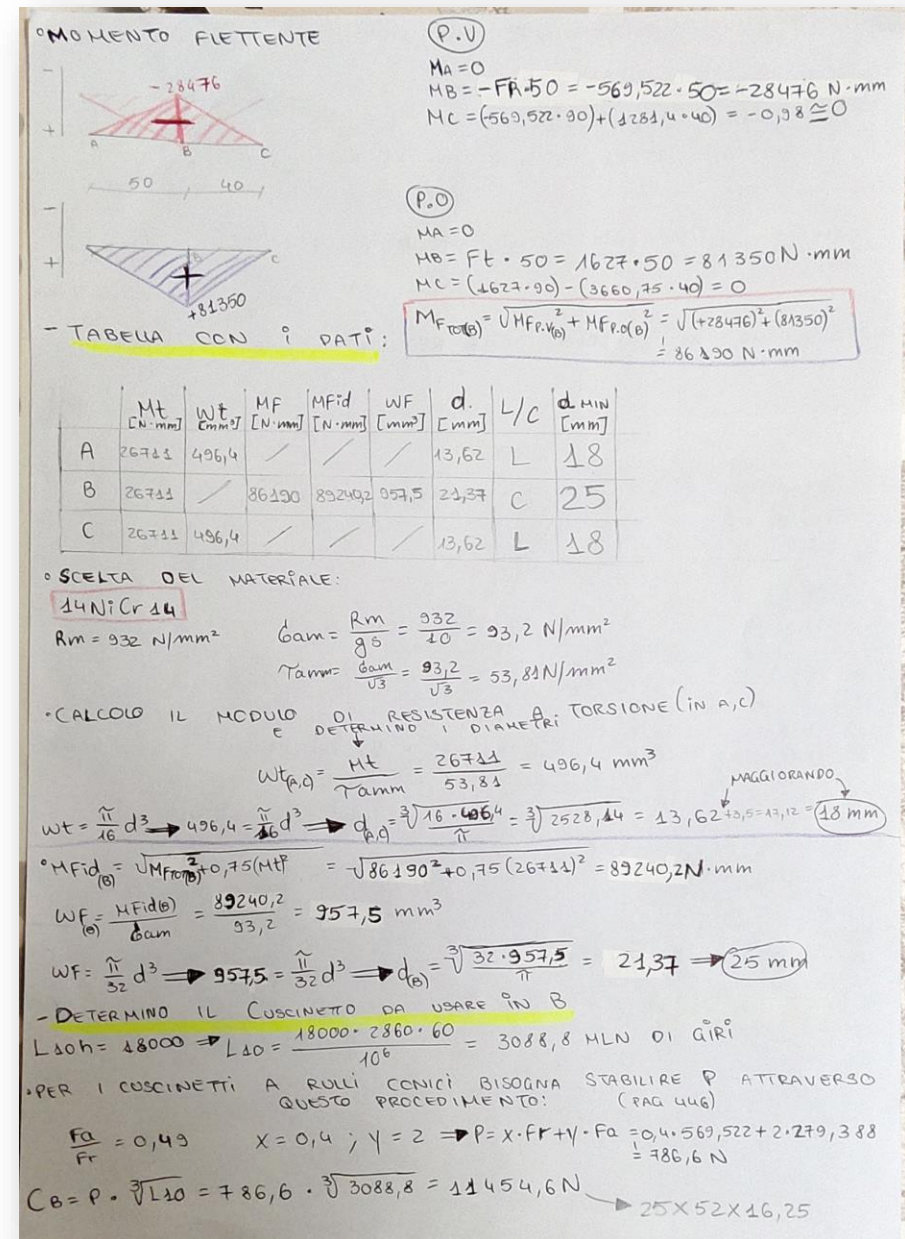 °MOMENTO FLETTENTE
P.V
MA = 0
MB = -FR·50 = -569,522·50 = -28476 N·mm
MC = (-569,522·90)+(1281,4·40) = -0,98 ≅ 0
-
+
-28476
A
B
C
50
40
P.O
MA = 0
MB = Ft · 50 = 1627·50 = 81350 N·mm
MC = (1627·90) - (3660,75·40) = 0
-
+
B
C
+81350
MF TOT(B) = √MFP.V(B)² + MFP.O(B)² = √(+28476)²+(81350)²
= 86190 N·mm
- TABELLA CON i DATI:
Mt [N·mm] Wt [mm³] MF [N·mm] MFid [N·mm] WF [mm³] d. [mm] L/C d MIN [mm]
A 26711 496,4 / / / 13,62 L 18
B 26711 / 86190 89240,2 957,5 21,37 C 25
C 26711 496,4 / / / 13,62 L 18
° SCELTA DEL MATERIALE:
14NiCr14
Rm = 932 N/mm² σam = Rm/gs = 932/10 = 93,2 N/mm²
τamm = σam/√3 = 93,2/√3 = 53,81 N/mm²
·CALCOLO IL MODULO DI RESISTENZA A TORSIONE (IN A,C)
E DETERMINO I DIAMETRI
Wt(A,C) = Mt/τamm = 26711/53,81 = 496,4 mm³
MAGGIORANDO
Wt = π/16 d³ → 496,4 = π/16 d³ → d(A,C) = ³√16·496,4/π = ³√2528,14 = 13,62 +3,5 = 17,12 = 18 mm
°MFid(B) = √MFTOT(B)²+0,75(Mt)² = √86190²+0,75(26711)² = 89240,2N·mm
WF(B) = MFid(B)/σam = 89240,2/93,2 = 957,5 mm³
WF = π/32 d³ → 957,5 = π/32 d³ → d(B) = ³√32·957,5/π = 21,37 → 25 mm
- DETERMINO IL CUSCINETTO DA USARE IN B
L10h = 18000 → L10 = 18000·2860·60/10⁶ = 3088,8 MLN DI GIRI
·PER I CUSCINETTI A RULLI CONICI BISOGNA STABILIRE P ATTRAVERSO
QUESTO PROCEDIMENTO: (PAG 446)
Fa/Fr = 0,49 X = 0,4 ; Y = 2 → P = X·Fr+Y·Fa = 0,4·569,522+2·279,388
= 786,6 N
CB = P · ³√L10 = 786,6 · ³√3088,8 = 11454,6N
25X52X16,25